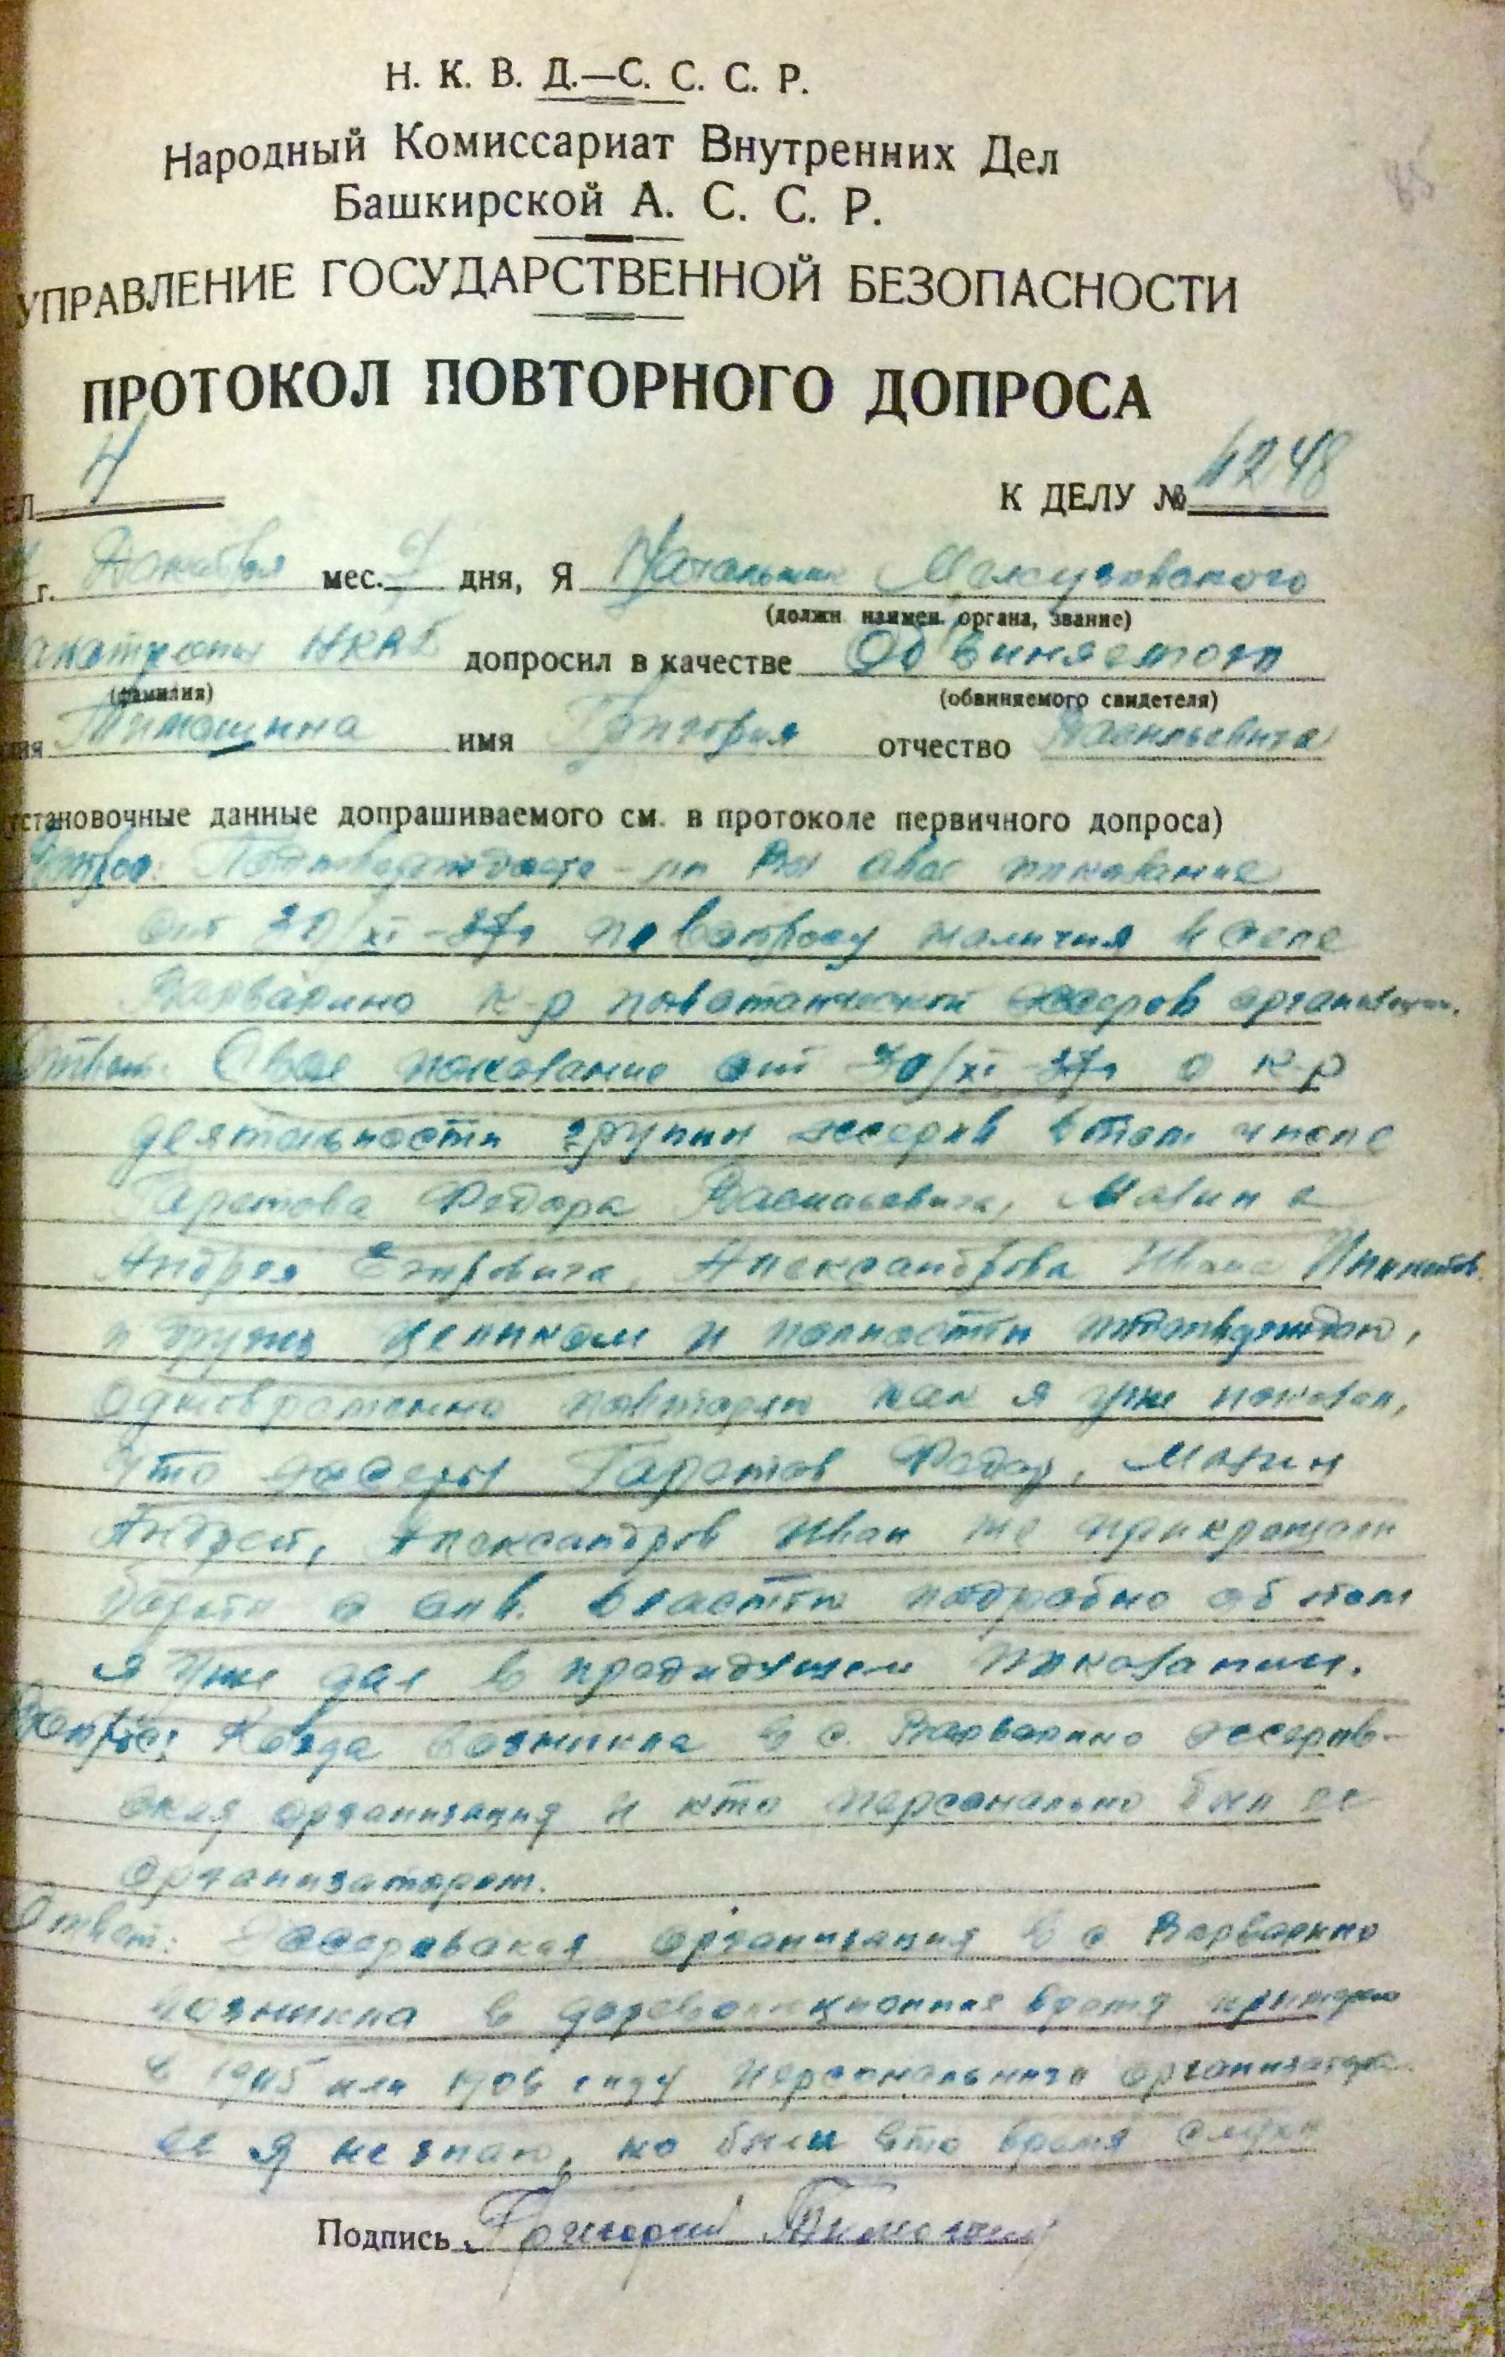 85
Н. К. В. Д.—С. С. С. Р.
Народный Комиссариат Внутренних Дел
Башкирской А. С. С. Р.
УПРАВЛЕНИЕ ГОСУДАРСТВЕННОЙ БЕЗОПАСНОСТИ
ПРОТОКОЛ ПОВТОРНОГО ДОПРОСА
ЕЛ 4 К ДЕЛУ № 4248
г. Декабря мес. 7 дня, Я Начальник Мелеузовского
(должн наимен. органа, звание)
НКВД допросил в качестве Обвиняемого
(фамилия) (обвиняемого свидетеля)
Тимошина имя Григория отчество Васильевича
становочные данные допрашиваемого см. в протоколе первичного допроса)
Вопрос: Подтверждаете-ли Вы свое показание
от 30/XI-37г по вопросу наличия в селе
Варварино к-р повстанческой эссеров организации.
Ответ: Свое показание от 30/XI-37г о к-р
деятельности группы эссеров в том числе
Гаретова Федора Васильевича, Мазина
Андрея Егоровича, Александрова Ивана
и других целиком и полностью подтверждаю,
одновременно повторяю как я уже показал,
что эссеры Гаретов Федор, Мазин
Андрей, Александров Иван не прикращали
борьбы с сов. властью подробно об этом
я уже дал в предидущем показании.
Вопрос: Когда возникла в с. Варварино эссеров-
ская организация и кто персонально был ее
организатором.
Ответ: Эссеровская организация в с Варварино
возникла в дореволюционная время примерно
в 1905 или 1906 году персонального организатора
ее я не знаю, но были в то время слухи
Подпись Григорий Тимошин